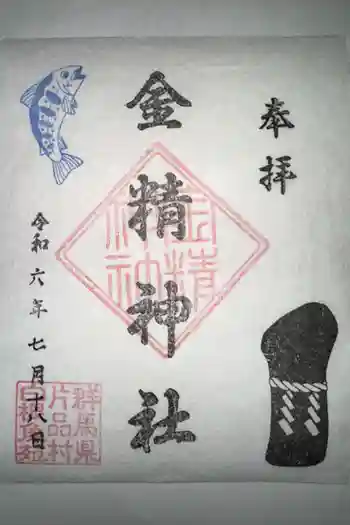 奉拝
金精神社
金精
神社
令和六年七月十八日
群馬県
片品村